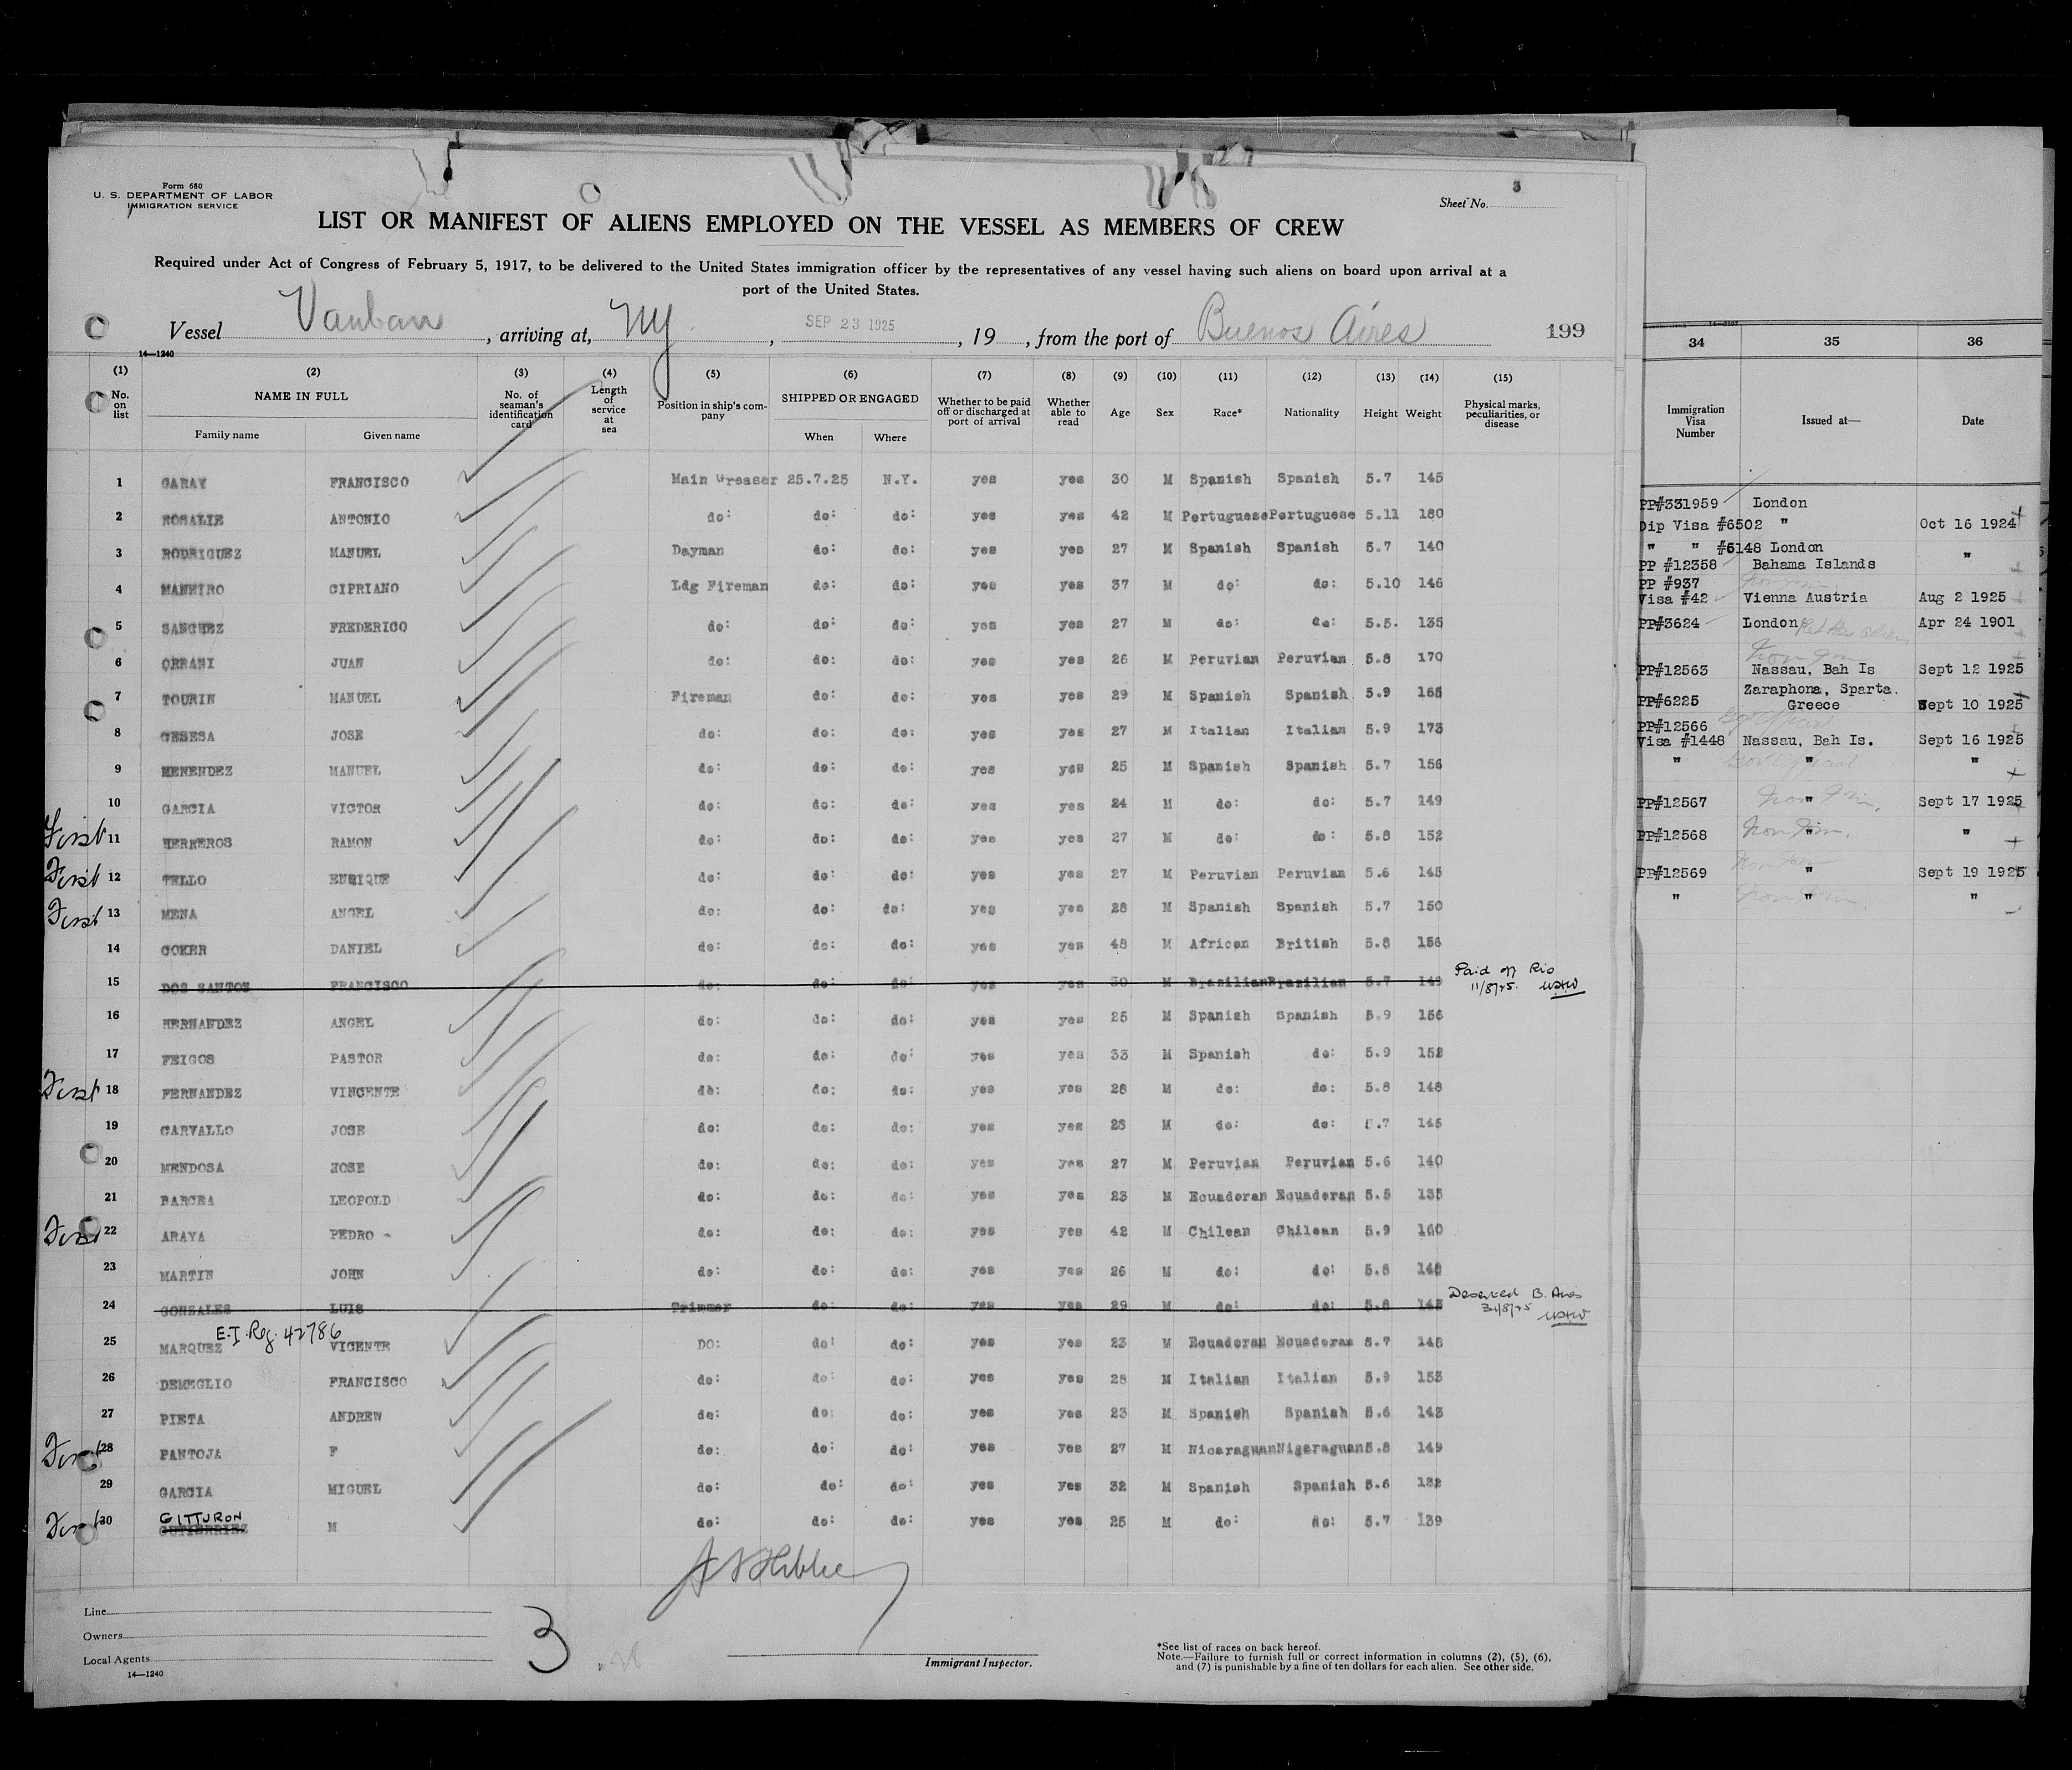 Form 680
U. S. DEPARTMENT OF LABOR
IMMIGRATION SERVICE
Sheet No. 3
LIST OR MANIFEST OF ALIENS EMPLOYED ON THE VESSEL AS MEMBERS OF CREW
Required under Act of Congress of February 5, 1917, to be delivered to the United States immigration officer by the representatives of any vessel having such aliens on board upon arrival at a
port of the United States.
Vessel Vauban, arriving at, NY, SEP 23 1925, 19 , from the port of Buenos Aires 199
14—1240
(1) (2) (3) (4) (5) (6) (7) (8) (9) (10) (11) (12) (13) (14) (15)
No. on list NAME IN FULL Family name Given name No. of seaman's identification card Length of service at sea Position in ship's company SHIPPED OR ENGAGED When Where Whether to be paid off or discharged at port of arrival Whether able to read Age Sex Race* Nationality Height Weight Physical marks, peculiarities, or disease
1 GARAY FRANCISCO Main Greaser 25.7.25 N.Y. yes yes 30 M Spanish Spanish 5.7 145
2 ROSALIE ANTONIO do: do: do: yes yes 42 M Portuguese Portuguese 5.11 180
3 RODRIGUEZ MANUEL Dayman do: do: yes yes 27 M Spanish Spanish 5.7 140
4 MANEIRO CIPRIANO Ldg Fireman do: do: yes yes 37 M do: do: 5.10 146
5 SANCHEZ FREDERICO do: do: do: yes yes 27 M do: do: 5.5. 135
6 ORBANI JUAN do: do: do: yes yes 26 M Peruvian Peruvian 5.8 170
7 TOURIN MANUEL Fireman do: do: yes yes 29 M Spanish Spanish 5.9 165
8 GESESA JOSE do: do: do: yes yes 27 M Italian Italian 5.9 173
9 MENENDEZ MANUEL do: do: do: yes yes 25 M Spanish Spanish 5.7 156
10 GARCIA VICTOR do: do: do: yes yes 24 M do: do: 5.7 149
First 11 HERREROS RAMON do: do: do: yes yes 27 M do: do: 5.8 152
First 12 TELLO ENRIQUE do: do: do: yes yes 27 M Peruvian Peruvian 5.6 145
First 13 MENA ANGEL do: do: do: yes yes 28 M Spanish Spanish 5.7 150
14 COKER DANIEL do: do: do: yes yes 48 M African British 5.8 156
15 DOS SANTOS FRANCISCO do: do: do: yes yes 30 M Brazilian Brazilian 5.7 149 Paid off Rio 11/8/25.
16 HERNANDEZ ANGEL do: do: do: yes yes 25 M Spanish Spanish 5.9 156
17 FEIGOS PASTOR do: do: do: yes yes 33 M Spanish do: 5.9 152
First 18 FERNANDEZ VINCENTE do: do: do: yes yes 28 M do: do: 5.8 148
19 CARVALLO JOSE do: do: do: yes yes 28 M do: do: 5.7 145
20 MENDOSA JOSE do: do: do: yes yes 27 M Peruvian Peruvian 5.6 140
21 BARCEA LEOPOLD do: do: do: yes yes 23 M Ecuadoran Ecuadoran 5.5 135
First 22 ARAYA PEDRO - do: do: do: yes yes 42 M Chilean Chilean 5.9 160
23 MARTIN JOHN do: do: do: yes yes 26 M do: do: 5.8 148
24 GONZALES LUIS Trimmer do: do: yes yes 29 M do: do: 5.8 145 Deserted B. Aires 31/8/25
E.I. Reg. 42786
25 MARQUEZ VICENTE DO: do: do: yes yes 23 M Ecuadoran Ecuadoran 5.7 148
26 DEMEGLIO FRANCISCO do: do: do: yes yes 28 M Italian Italian 5.9 153
27 PIETA ANDREW do: do: do: yes yes 23 M Spanish Spanish 5.6 143
First 28 PANTOJA F do: do: do: yes yes 27 M Nicaraguan Nigaraguan 5.8 149
29 GARCIA MIGUEL do: do: do: yes yes 32 M Spanish Spanish 5.6 132
First 30 GITTURON GUTIERRIEZ M do: do: do: yes yes 25 M do: do: 5.7 139
Line
Owners
Local Agents
14—1240
3
Immigrant Inspector.
*See list of races on back hereof.
Note.—Failure to furnish full or correct information in columns (2), (5), (6),
and (7) is punishable by a fine of ten dollars for each alien. See other side.
34 35 36
Immigration Visa Number Issued at— Date
PP#331959 London
Dip Visa #6502 " Oct 16 1924
" " #6148 London "
PP #12358 Bahama Islands
PP #937
Visa #42 Vienna Austria Aug 2 1925
PP#3624 London Apr 24 1901
PP#12563 Nassau, Bah Is Sept 12 1925
Zaraphona, Sparta.
PP#6225 Greece Sept 10 1925
PP#12566
Visa #1448 Nassau, Bah Is. Sept 16 1925
" " "
PP#12567 " Sept 17 1925
PP#12568 " "
PP#12569 " Sept 19 1925
" " "